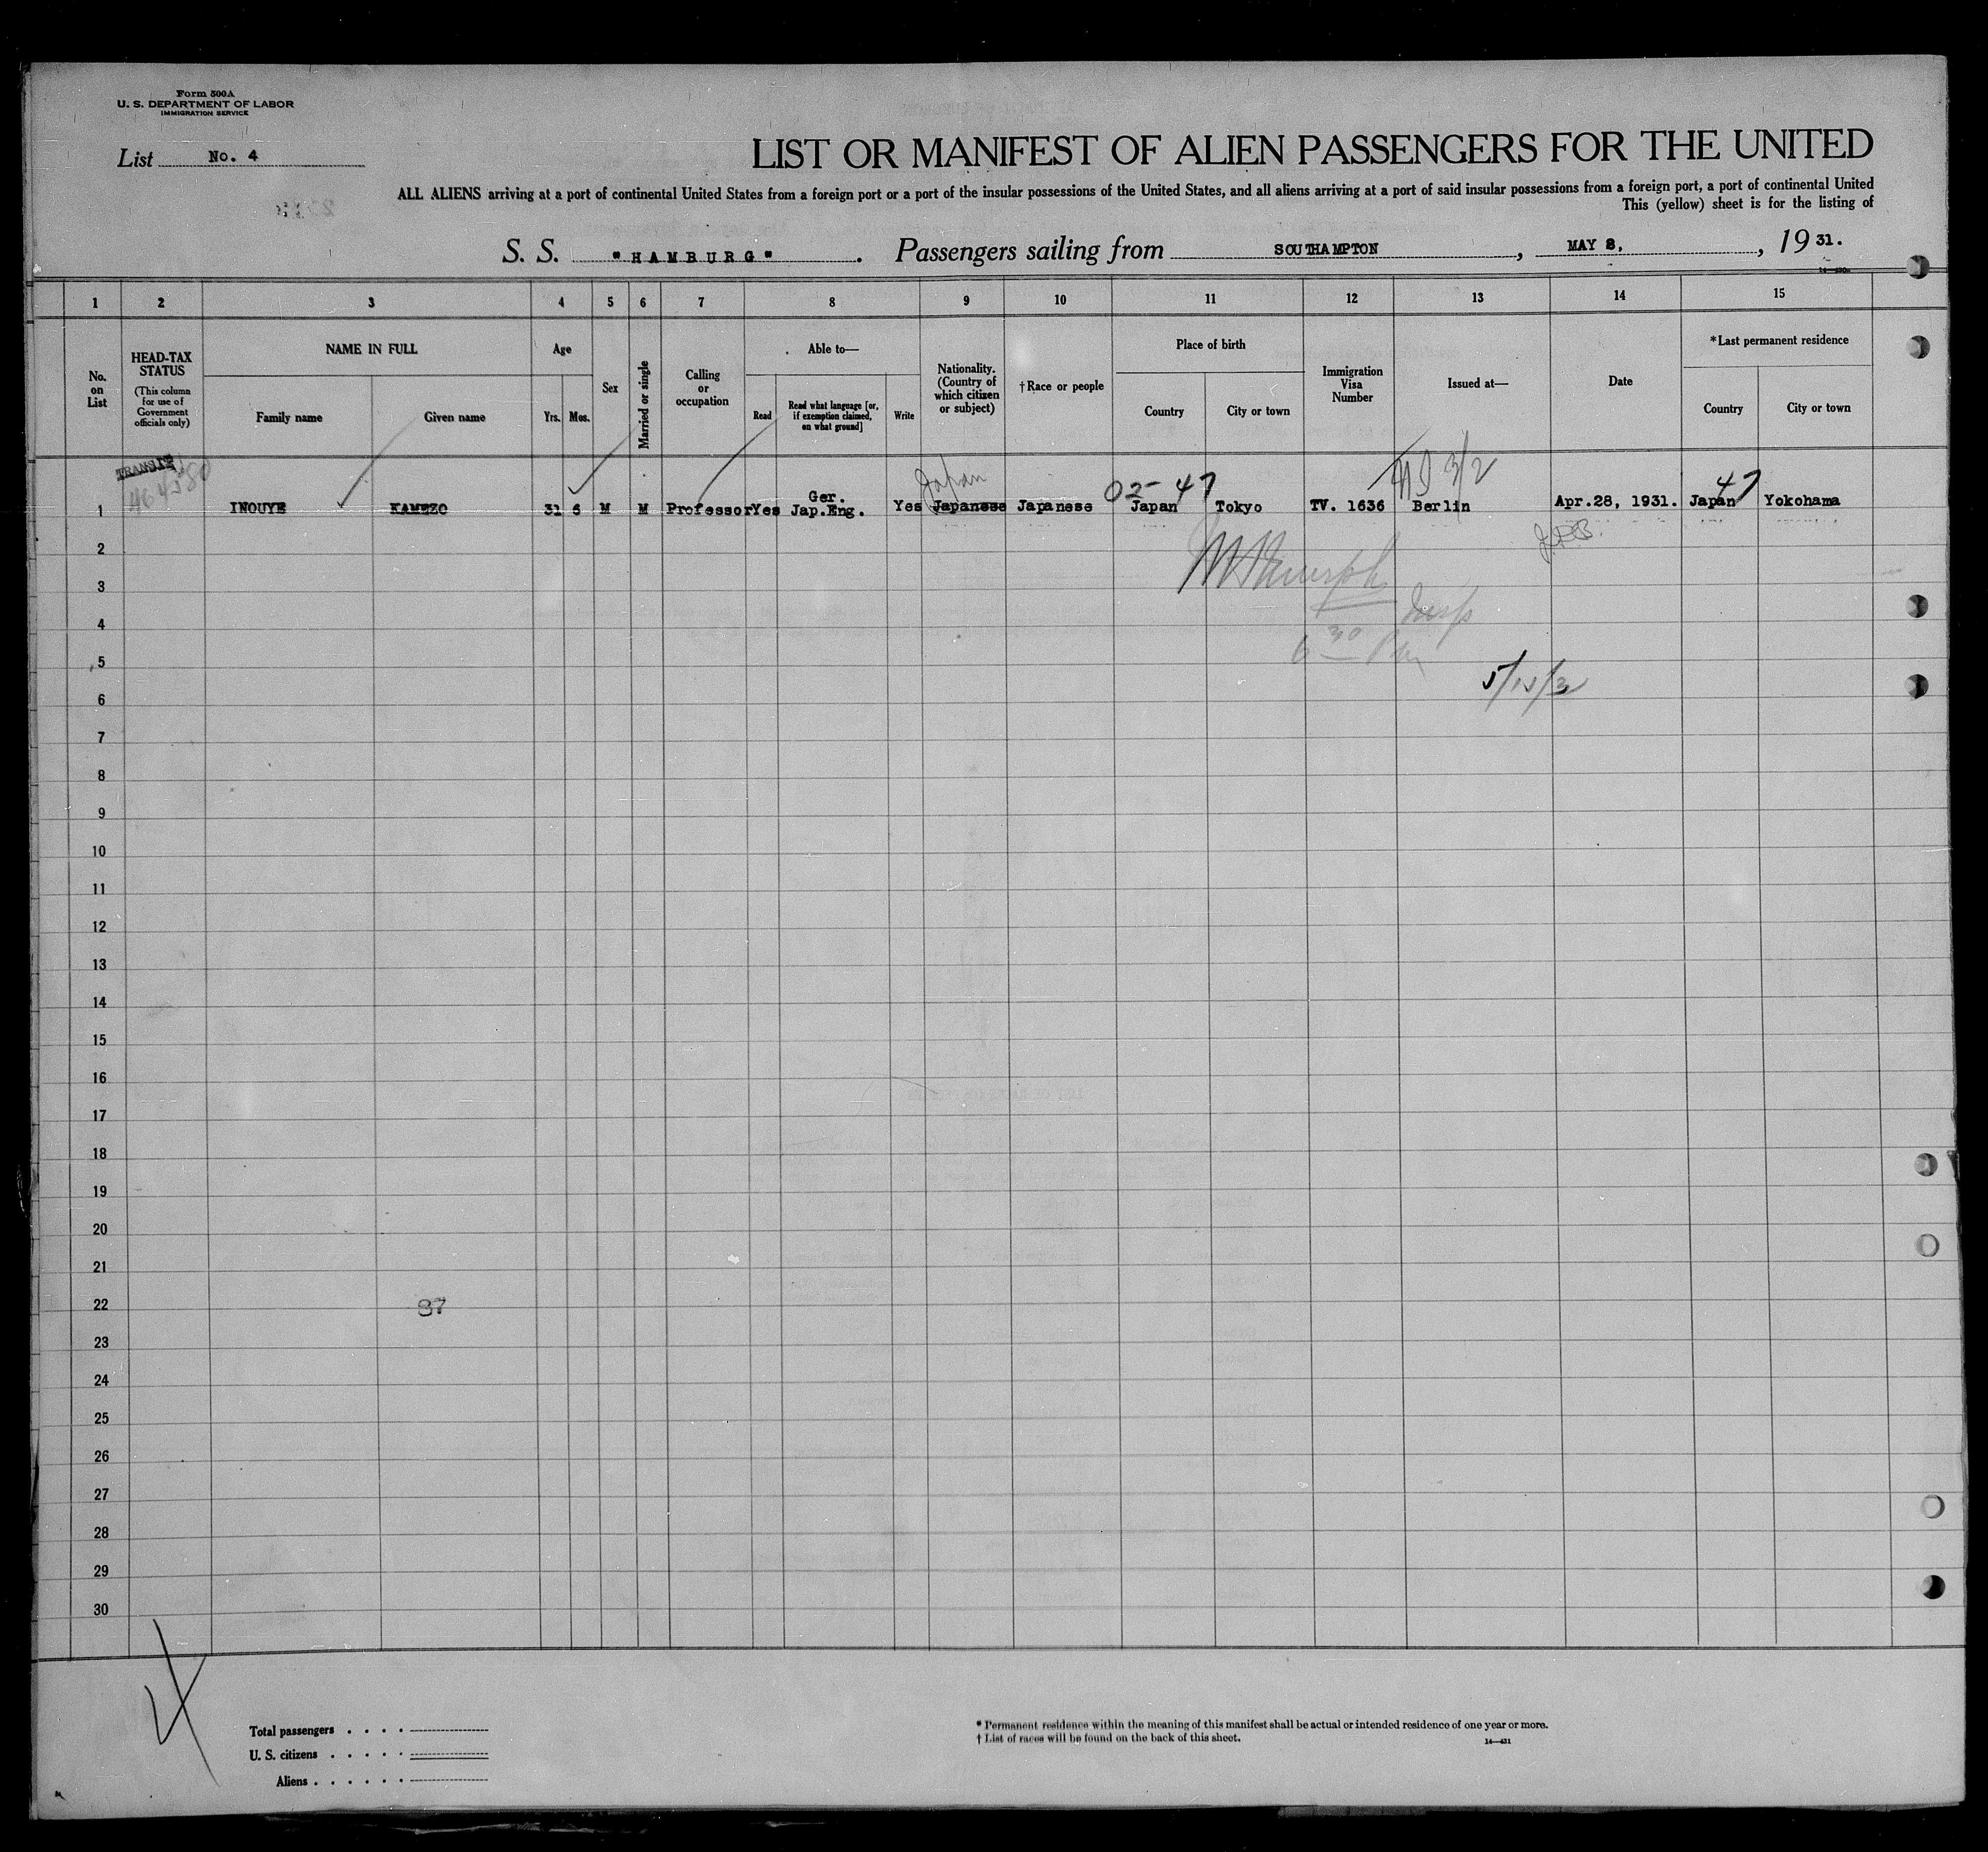 Form 500A
U. S. DEPARTMENT OF LABOR
IMMIGRATION SERVICE
List No. 4
LIST OR MANIFEST OF ALIEN PASSENGERS FOR THE UNITED
ALL ALIENS arriving at a port of continental United States from a foreign port or a port of the insular possessions of the United States, and all aliens arriving at a port of said insular possessions from a foreign port, a port of continental United
This (yellow) sheet is for the listing of
S. S. "HAMBURG". Passengers sailing from SOUTHAMPTON, MAY 8, , 1931.
1 2 3 4 5 6 7 8 9 10 11 12 13 14 15
No. on List
HEAD-TAX STATUS
(This column for use of Government officials only)
NAME IN FULL
Family name Given name
Age
Yrs. Mos.
Sex
Married or single
Calling or occupation
Able to—
Read
Read what language [or, if exemption claimed, on what ground]
Write
Nationality. (Country of which citizen or subject)
†Race or people
Place of birth
Country City or town
Immigration Visa Number
Issued at—
Date
*Last permanent residence
Country City or town
TRANSIT
Japan 02- 47 3/2 47
1 INOUYE KAMEZO 31 6 M M Professor Yes Ger. Jap.Eng. Yes Japanese Japanese Japan Tokyo TV. 1636 Berlin Apr.28, 1931. Japan Yokohama
2
3
4
6 30
5
6
7
8
9
10
11
12
13
14
15
16
17
18
19
20
21
22 87
23
24
25
26
27
28
29
30
Total passengers
U. S. citizens
Aliens
* Permanent residence within the meaning of this manifest shall be actual or intended residence of one year or more.
† List of races will be found on the back of this sheet.
14—431